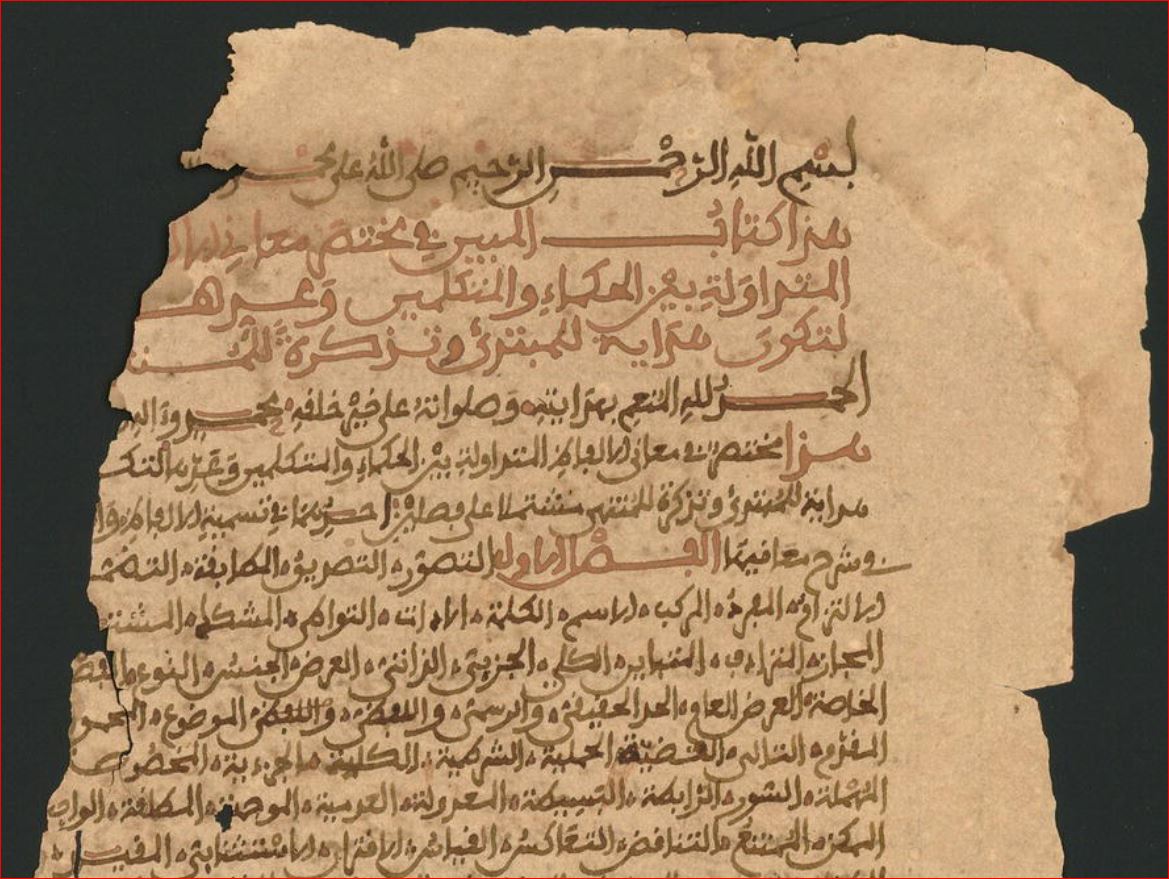 بسم الله الرحمن الرحيم صلى الله على محمد
هذا كتاب المبين في مختصر معاني الالفاظ
المتداولة بين الحكماء والمتكلمين وغيرها
لتكون هداية للمبتدئ وتذكرة للمنتهي
الحمد لله المنعم بهدايته وصلواته على خير خلقه محمد وءاله
هذا مختصر في معاني الالفاظ المتداولة بين الحكماء والمتكلمين وغيرها لتكون
هداية للمبتدئ وتذكرة للمنتهي مشتملا على فصلين احدهما في تسمية الالفاظ
في شرح معانيها الفصل الاول التصور التصديق المطابقة التضمن
الالتزام المفرد المركب الاسم الكلمة الادات التواطي المشكك
المجاز المترادف المتباين الكلي الجزئي الذاتي العرض الجنس النوع الفصل
الخاصة العرض العام الحد الحقيقي والرسمي واللفظي الموضوع المحمول
المقدم التالي القضية الحملية الشرطية الكلية الجزءية المحصورة
المهملة السور الرابطة البسيطة المعدولة العدمية الموجهة المطلقة
الممكن الممتنع التناقض التعاكس القياس الاقتران الاستثنائي